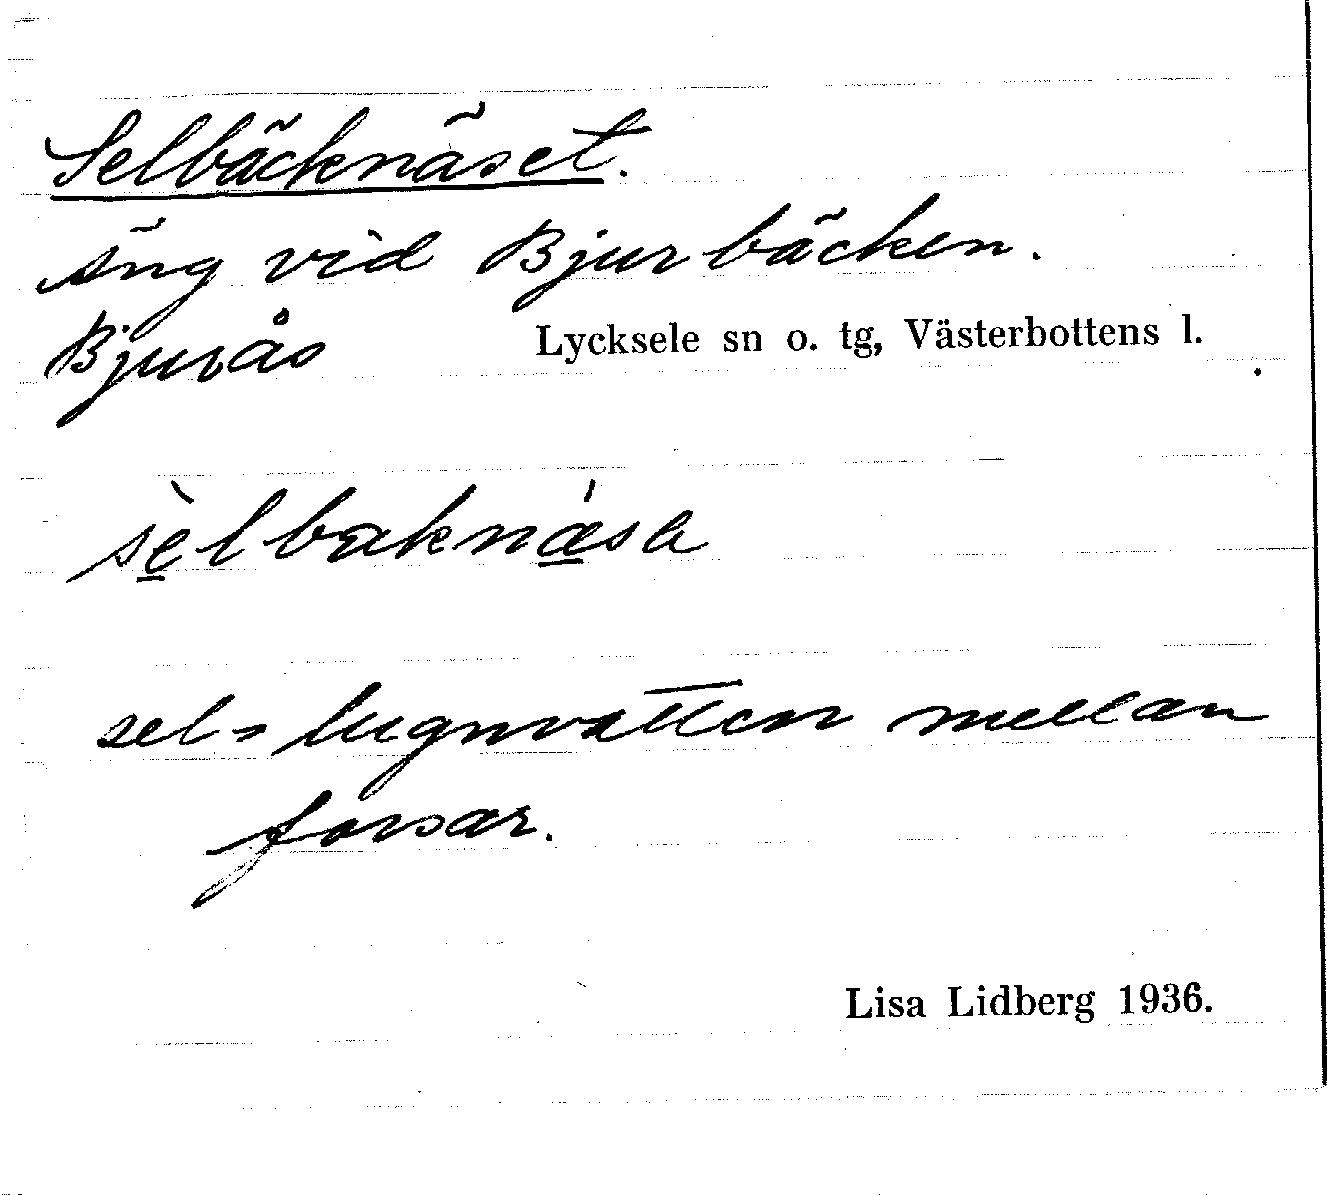 Selbäcknäset.
äng vid Bjurbäcken.
Bjurås Lycksele sn o. tg, Västerbottens l.
sè̱lbaknǽ̱sa
sel = lugnvatten mellan
forsar.
Lisa Lidberg 1936.